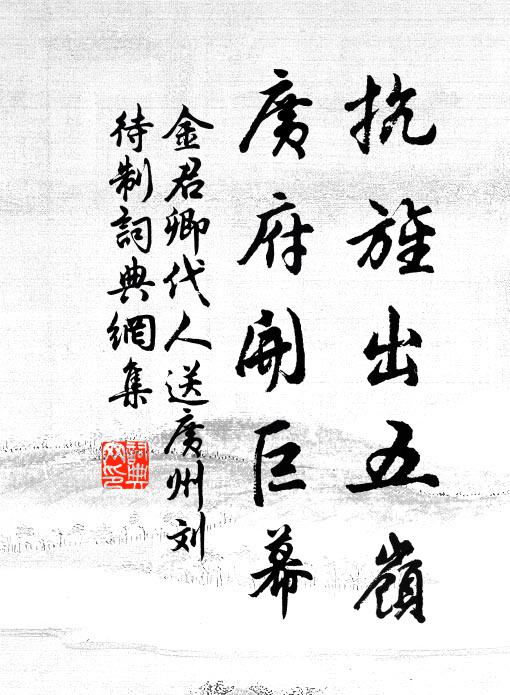 抗旌出五嶺
廣府開巨幕
金君卿代人送廣州刘
待制詞典網集
詞典